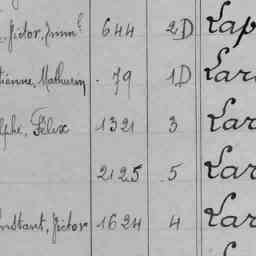 Victor, Imml 644 2D Lap
tienne, Mathurin . 79 1D Lar
lphe, Félix 1321 3 Lar
2125 5 Lar
onstant, Victor 1624 4 Lar